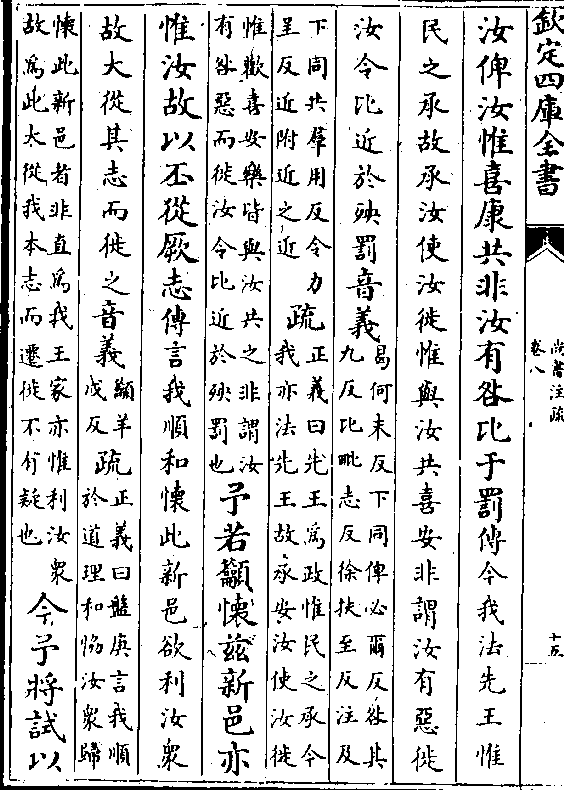 欽定四庫全書
尚書注疏
卷八
十五
汝俾汝惟喜康共非汝有咎比于罰傳今我法先王惟
民之承故承汝使汝徙惟與汝共喜安非謂汝有惡徙
汝令比近於殃罰音義
曷何末反下同俾必爾反咎其
九反比毗志反徐扶至反注及
下同共羣用反令力
呈反近附近之近
疏
正義曰先王為政惟民之承今
我亦法先王故承安汝使汝徙
惟歡喜安樂皆與汝共之非謂汝
有咎惡而徙汝令比近於殃罰也
予若籲懷茲新邑亦
惟汝故以丕從厥志傳言我順和懷此新邑欲利汝衆
故大從其志而徙之音義
籲羊
戍反
疏
正義曰盤庚言我順
於道理和協汝衆歸
懷此新邑者非直為我王家亦惟利汝衆
故為此大從我本志而遷徙不有疑也
今予將試以